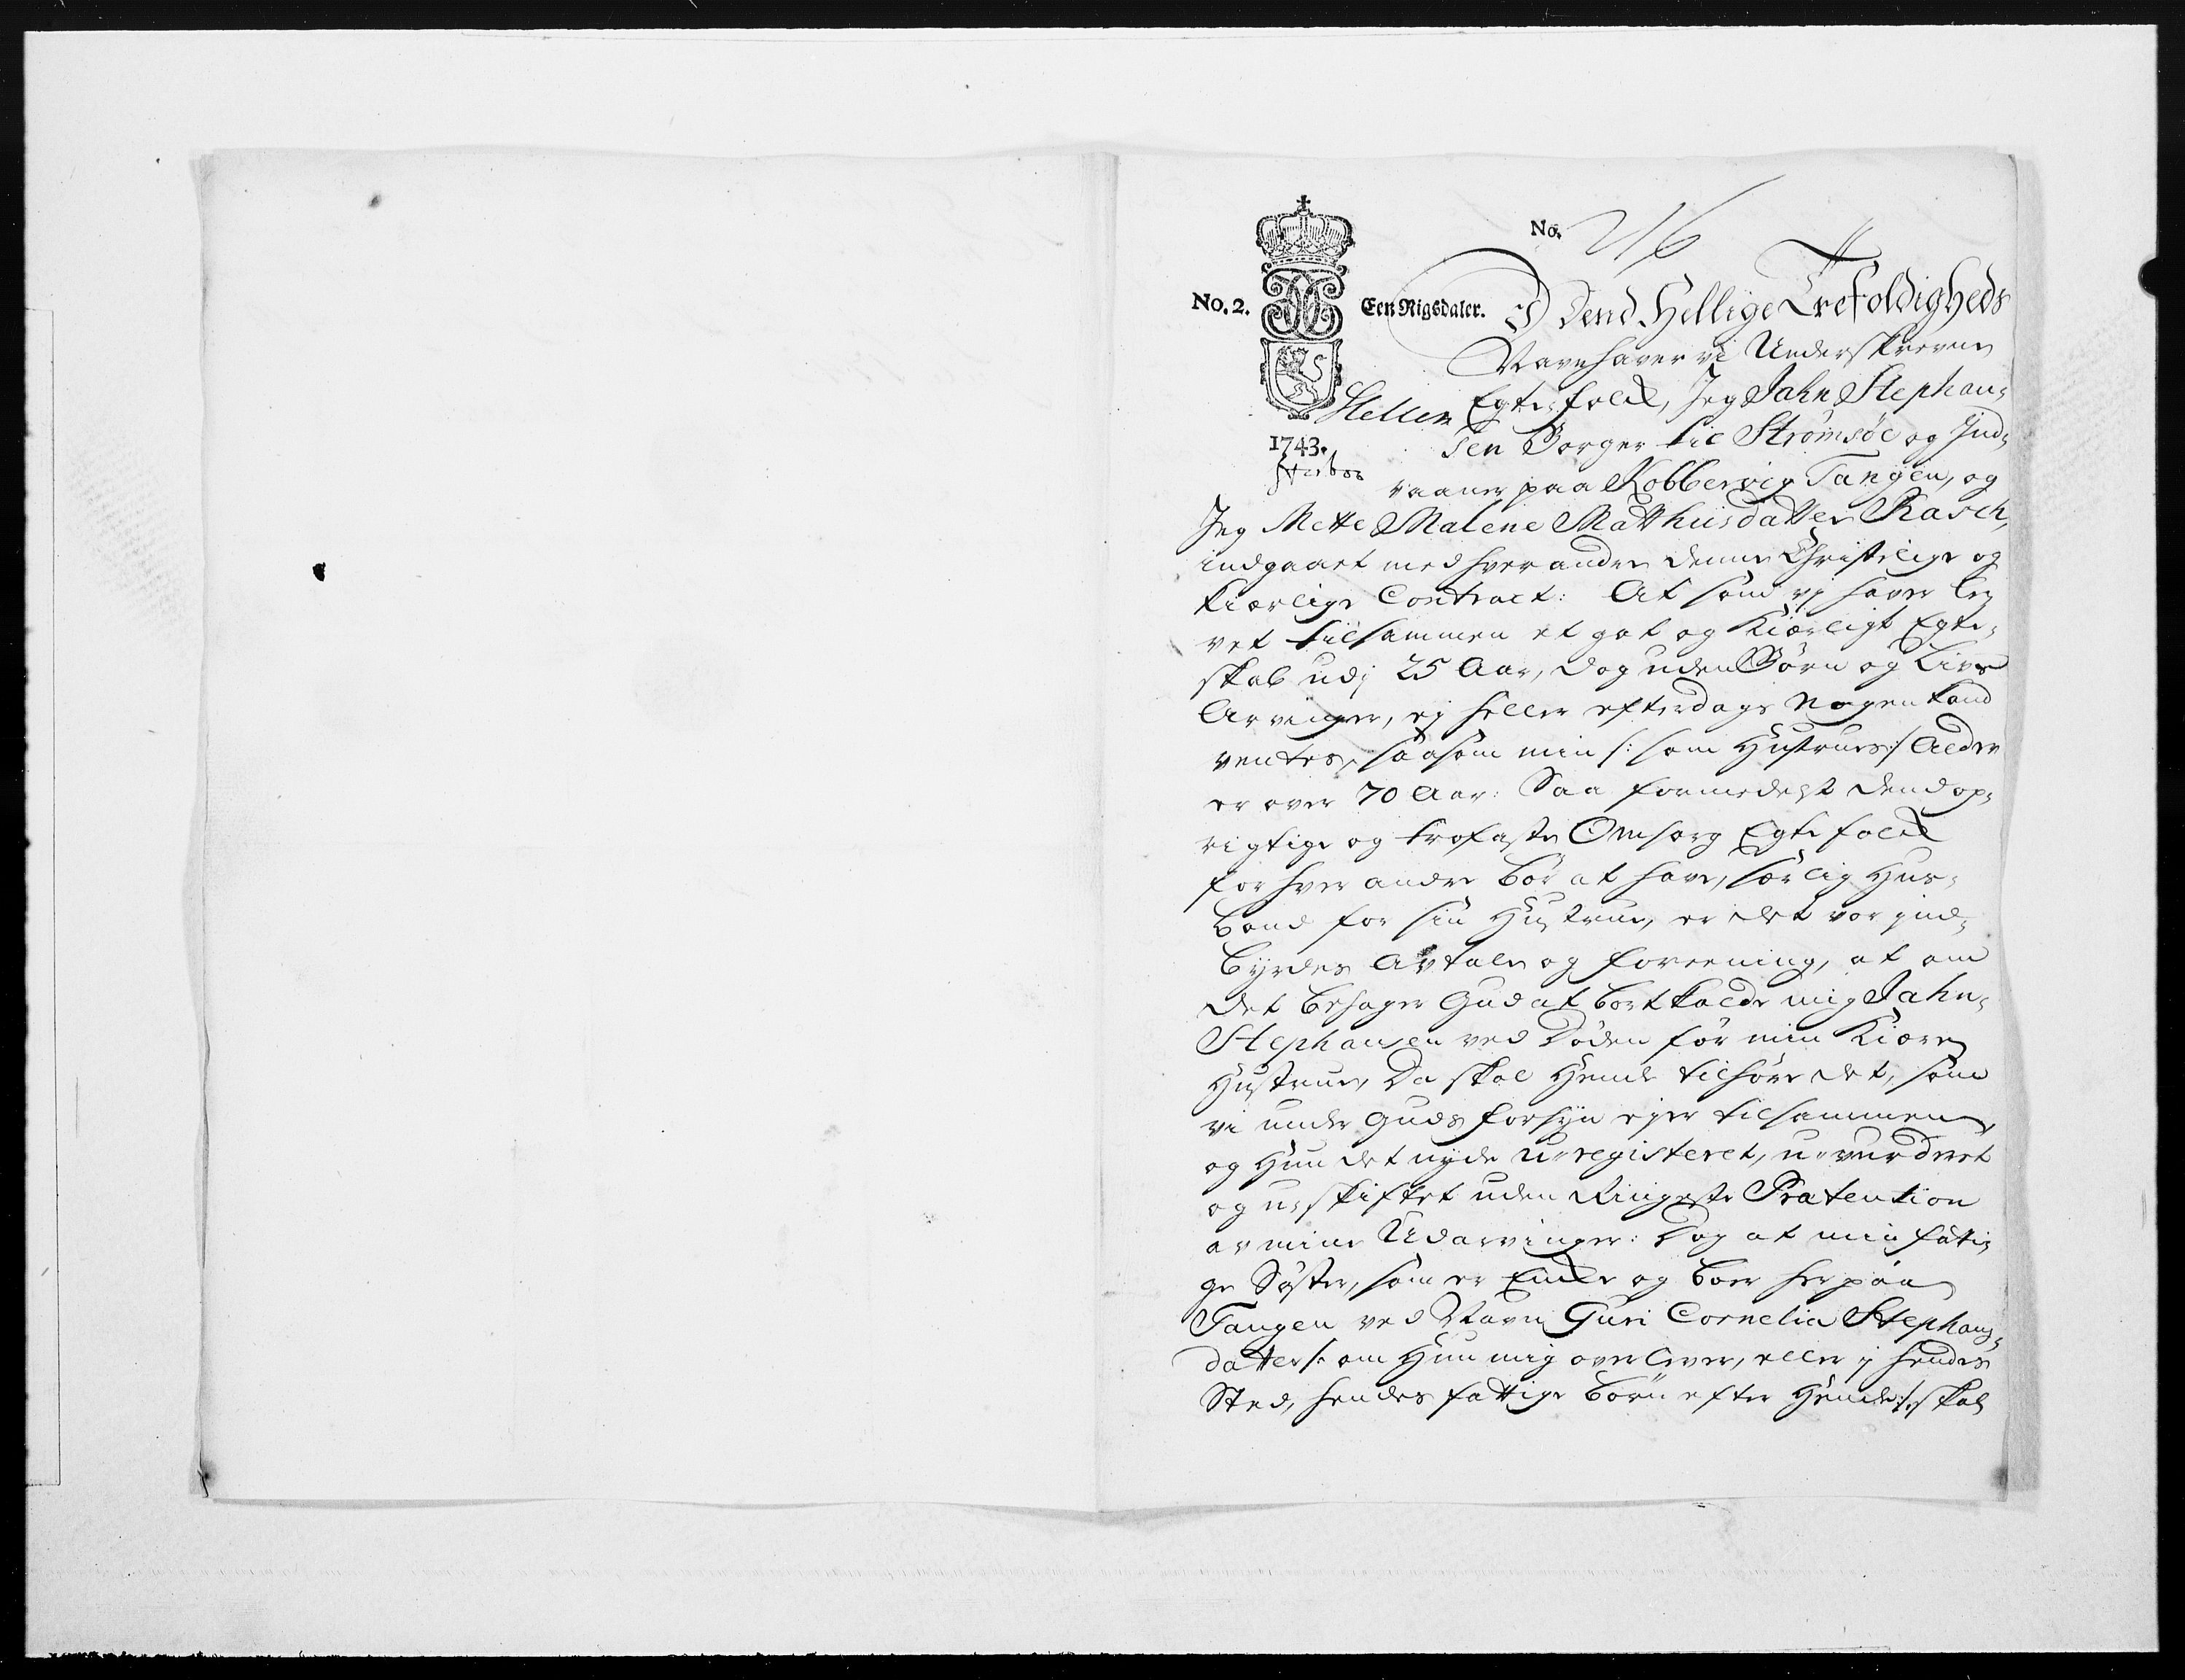 No. 216
No. 2.
Een Rigsdaler.
1743.
I Dend Hellige Trefoldigheds
Navn haver vi Underskrevne
Egte-folk, Jeg Jahn Stephan-
sen Borger til Strømsøe og Ind-
vaaner paa Kobbervig Tangen, og
Jeg Mette Malene Matthiisdatter Rasch,
indgaaet med hverandre denne Christelige og
kierlige Contract: At som vi haver le-
vet tilsammen et got og Kierligt Egte-
skab udj 25 Aar, dog uden Børn og Livs
Arvinger, ej heller efterdags nogen kand
ventes, saasom min /: som Hustrues :/ Alder
er over 70 Aar: Saa formedelst dend op-
rigtige og trofaste Omsorg Egtefolk
for hverandre bør at have, særlig Hus-
bond for sin Hustrue, er det vor ind-
byrdes Avtale og foreening, at om
det behager Gud at bortkalde mig Jahn
Stephansen ved Døden før min Kiere
Hustrue, Da skal Hende tilhøre det, som
vi under Guds forsyn ejer tilsammen,
og Hun det nyde u-registeret, u-vurderet
og u-skiftet uden Ringeste Prætention
av mine Udarvinger: Dog at min fatti-
ge Søster, som er Enke og boer her paa
Tangen ved Navn Guri Cornelia Stephans-
datter /: om Hun mig overlever, eller i hendes
Sted, hendes fattige børn efter Hende :/ skal